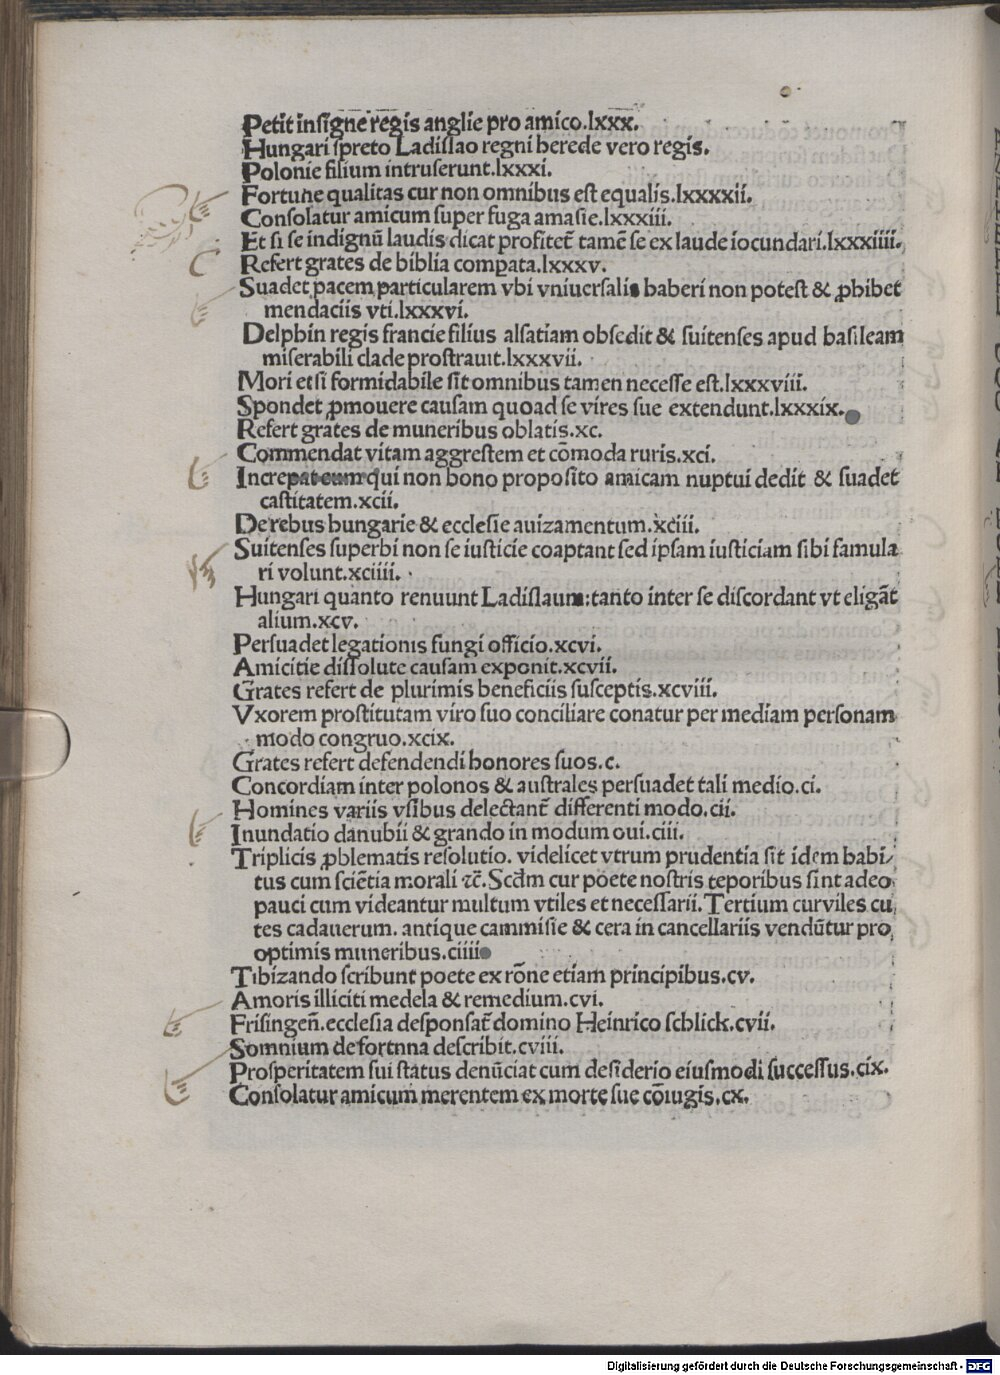 Petit insigne regis anglie pro amico.lxxx.
Hungari spreto Ladislao regni herede vero regis.
Polonie filium intruserunt.lxxxi.
Fortune qualitas cur non omnibus est equalis.lxxxxii.
Consolatur amicum super fuga amasie.lxxxiii.
Et si se indignū laudis dicat profitet̄ tamē se ex laude iocundari.lxxxiiii.
Refert grates de biblia comꝑata.lxxxv.
Suadet pacem particularem vbi vniuersalis haberi non potest & ꝓhibet
mendaciis vti.lxxxvi.
Delphin regis francie filius alsatiam obsedit & suitenses apud basileam
miserabili clade prostrauit.lxxxvii.
Mori etsi formidabile sit omnibus tamen necesse est.lxxxviii.
Spondet ꝓmouere causam quoad se vires sue extendunt.lxxxix.
Refert grates de muneribus oblatis.xc.
Commendat vitam aggrestem et cōmoda ruris.xci.
Increpat eum qui non bono proposito amicam nuptui dedit & suadet
castitatem.xcii.
De rebus hungarie & ecclesie auizamentum.xciii.
Suitenses superbi non se iusticie coaptant sed ipsam iusticiam sibi famula
ri volunt.xciiii.
Hungari quanto renuunt Ladislaum:tanto inter se discordant vt eligāt
alium.xcv.
Persuadet legationis fungi officio.xcvi.
Amicitie dissolute causam exponit.xcvii.
Grates refert de plurimis beneficiis susceptis.xcviii.
Vxorem prostitutam viro suo conciliare conatur per mediam personam
modo congruo.xcix.
Grates refert defendendi honores suos.c.
Concordiam inter polonos & australes persuadet tali medio.ci.
Homines variis vsibus delectant̄ differenti modo.cii.
Inundatio danubii & grando in modum oui.ciii.
Triplicis ꝓblematis resolutio. videlicet vtrum prudentia sit idem habi/
tus cum sciētia morali ⁊c̄. Scd̄m cur poete nostris teporibus sint adeo
pauci cum videantur multum vtiles et necessarii. Tertium cur viles cu
tes cadauerum. antique cammisie & cera in cancellariis vendūtur pro
optimis muneribus.ciiii
Tibizando scribunt poete ex rōne etiam principibus.cv.
Amoris illiciti medela & remedium.cvi.
Frisingen̄.ecclesia desponsat̄ domino Heinrico schlick.cvii.
Somnium de fortnna describit.cviii.
Prosperitatem sui status denūciat cum desiderio eiusmodi successus.cix.
Consolatur amicum merentem ex morte sue cōiugis.cx.
Digitalisierung gefördert durch die Deutsche Forschungsgemeinschaft - DFG